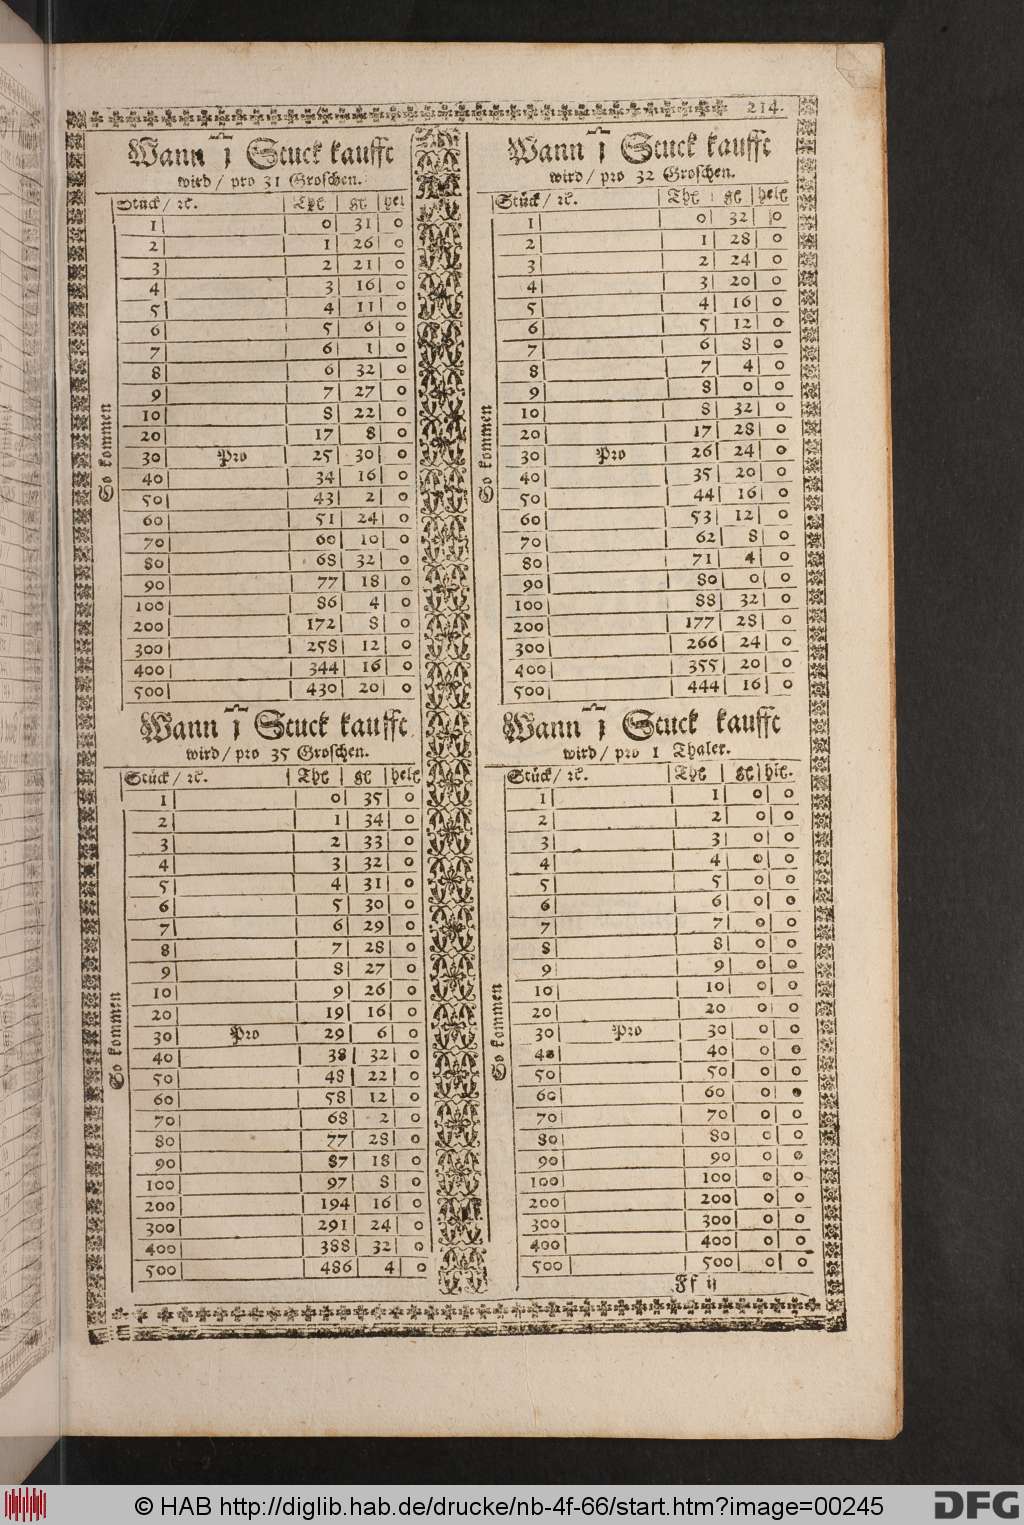 214.
Wann j Stuck kaufft
wird / pro 31 Groschen.
Stück / ꝛc. Thl gl hel
So kommen
1 0 31 0
2 1 26 0
3 2 21 0
4 3 16 0
5 4 11 0
6 5 6 0
7 6 1 0
8 6 32 0
9 7 27 0
10 8 22 0
20 17 8 0
30 Pro 25 30 0
40 34 16 0
50 43 2 0
60 51 24 0
70 60 10 0
80 68 32 0
90 77 18 0
100 86 4 0
200 172 8 0
300 258 12 0
400 344 16 0
500 430 20 0
Wann j Stuck kaufft
wird / pro 35 Groschen.
Stück / ꝛc. Thl gl helt
So kommen
1 0 35 0
2 1 34 0
3 2 33 0
4 3 32 0
5 4 31 0
6 5 30 0
7 6 29 0
8 7 28 0
9 8 27 0
10 9 26 0
20 19 16 0
30 Pro 29 6 0
40 38 32 0
50 48 22 0
60 58 12 0
70 68 2 0
80 77 28 0
90 87 18 0
100 97 8 0
200 194 16 0
300 291 24 0
400 388 32 0
500 486 4 0
Wann j Stuck kaufft
wird / pro 32 Groschen.
Stück / ꝛc. Thl gl helt
So kommen
1 0 32 0
2 1 28 0
3 2 24 0
4 3 20 0
5 4 16 0
6 5 12 0
7 6 8 0
8 7 4 0
9 8 0 0
10 8 32 0
20 17 28 0
30 Pro 26 24 0
40 35 20 0
50 44 16 0
60 53 12 0
70 62 8 0
80 71 4 0
90 80 0 0
100 88 32 0
200 177 28 0
300 266 24 0
400 355 20 0
500 444 16 0
Wann j Stuck kaufft
wird / pro 1 Thaler.
Stück / ꝛc. Thl gl hlt.
So kommen
1 1 0 0
2 2 0 0
3 3 0 0
4 4 0 0
5 5 0 0
6 6 0 0
7 7 0 0
8 8 0 0
9 9 0 0
10 10 0 0
20 20 0 0
30 Pro 30 0 0
40 40 0 0
50 50 0 0
60 60 0 0
70 70 0 0
80 80 0 0
90 90 0 0
100 100 0 0
200 200 0 0
300 300 0 0
400 400 0 0
500 500 0 0
Ff ij
© HAB http://diglib.hab.de/drucke/nb-4f-66/start.htm?image=00245
DFG